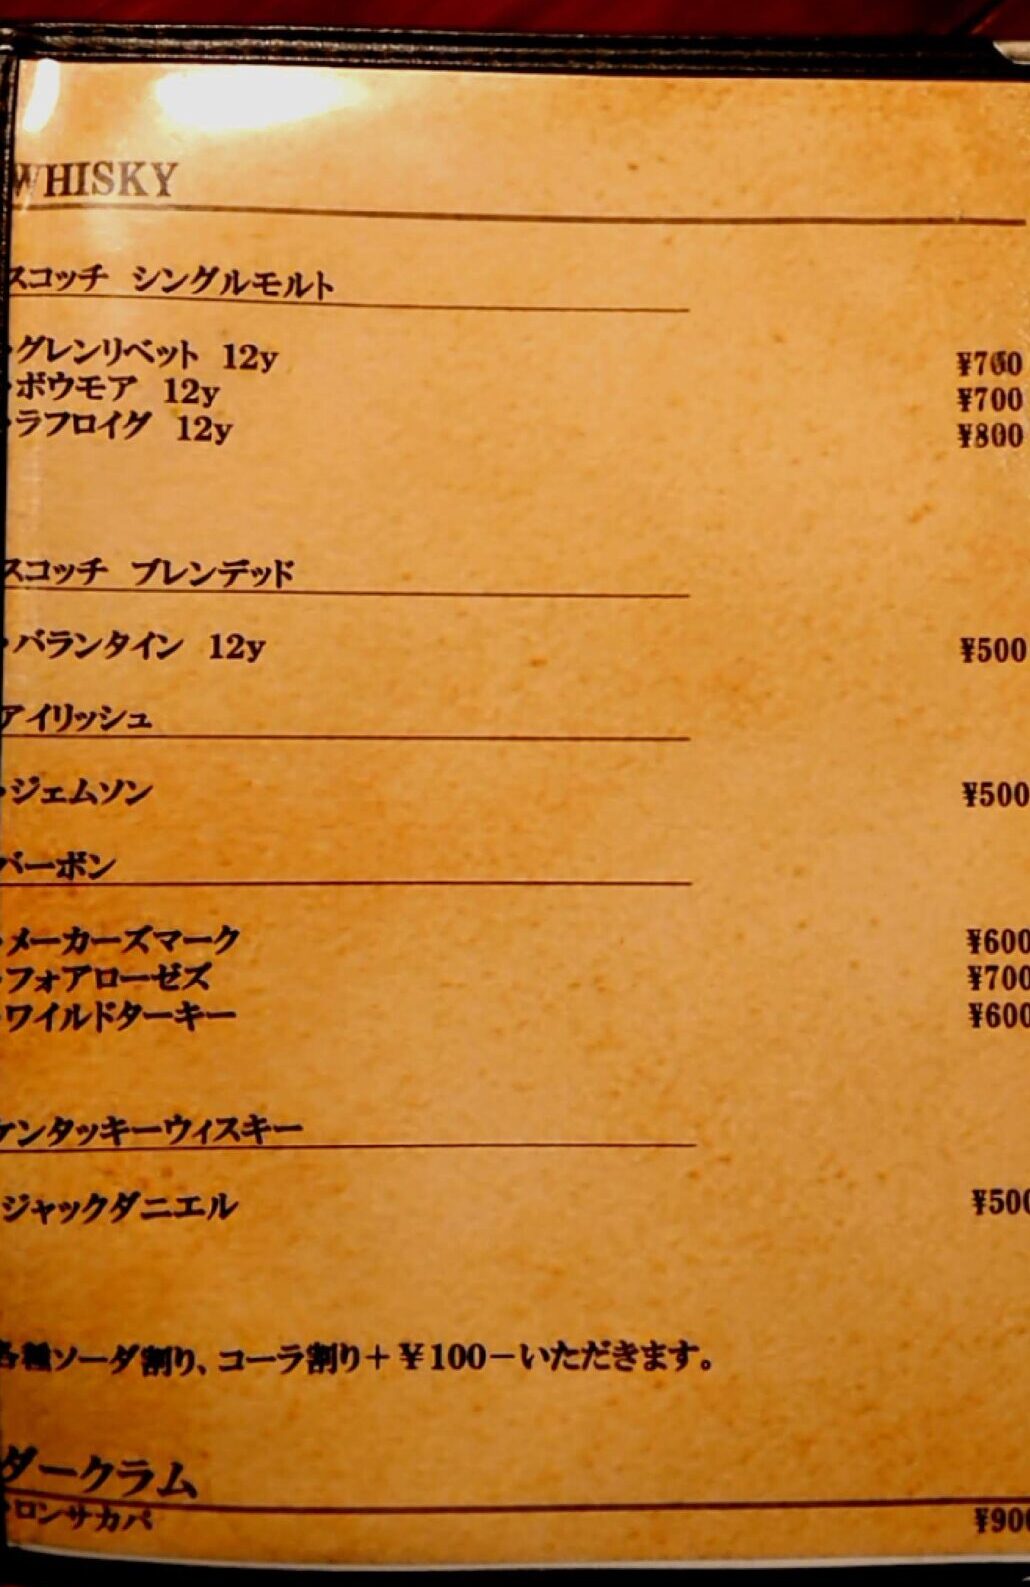 WHISKY
スコッチ シングルモルト
・グレンリベット 12y ¥700
・ボウモア 12y ¥700
・ラフロイグ 12y ¥800
スコッチ ブレンデッド
・バランタイン 12y ¥500
アイリッシュ
・ジェムソン ¥500
バーボン
・メーカーズマーク ¥600
・フォアローゼズ ¥700
・ワイルドターキー ¥600
ケンタッキーウィスキー
ジャックダニエル ¥500
各種ソーダ割り、コーラ割り+¥100-いただきます。
ダークラム
・ロンサカパ ¥900